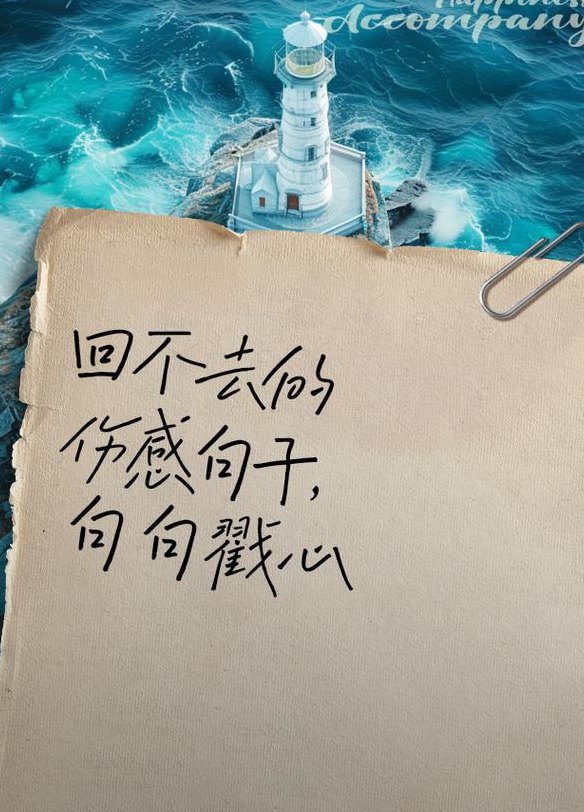 Happiness
Accompany
回不去的
伤感句子，
句句戳心